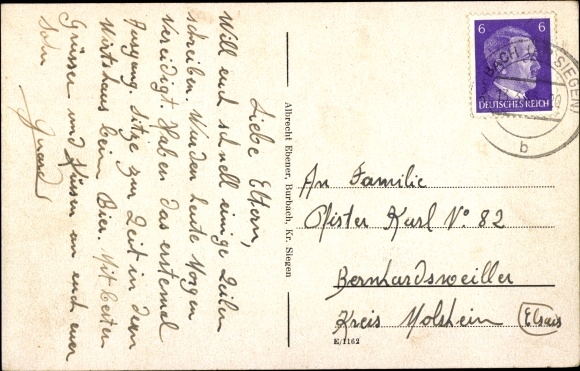 Liebe Eltern,
Will euch schnell einige Zeilen
schreiben. Wurden heute Morgen
Vereidigt. Haben das erstemal
Ausgang. Sitze zur Zeit in dem
Wirtshaus beim Bier. Mit besten
Grüssen und Küssen an euch euer
Sohn
Albrecht Ebener, Burbach, Kr. Siegen
6 6
DEUTSCHES REICH
BACH (KR. SIEGEN)
b
An Familie
Pfister Karl N° 82
Bernhardsweiller
Kreis Molsheim (Elsass)
E/1162